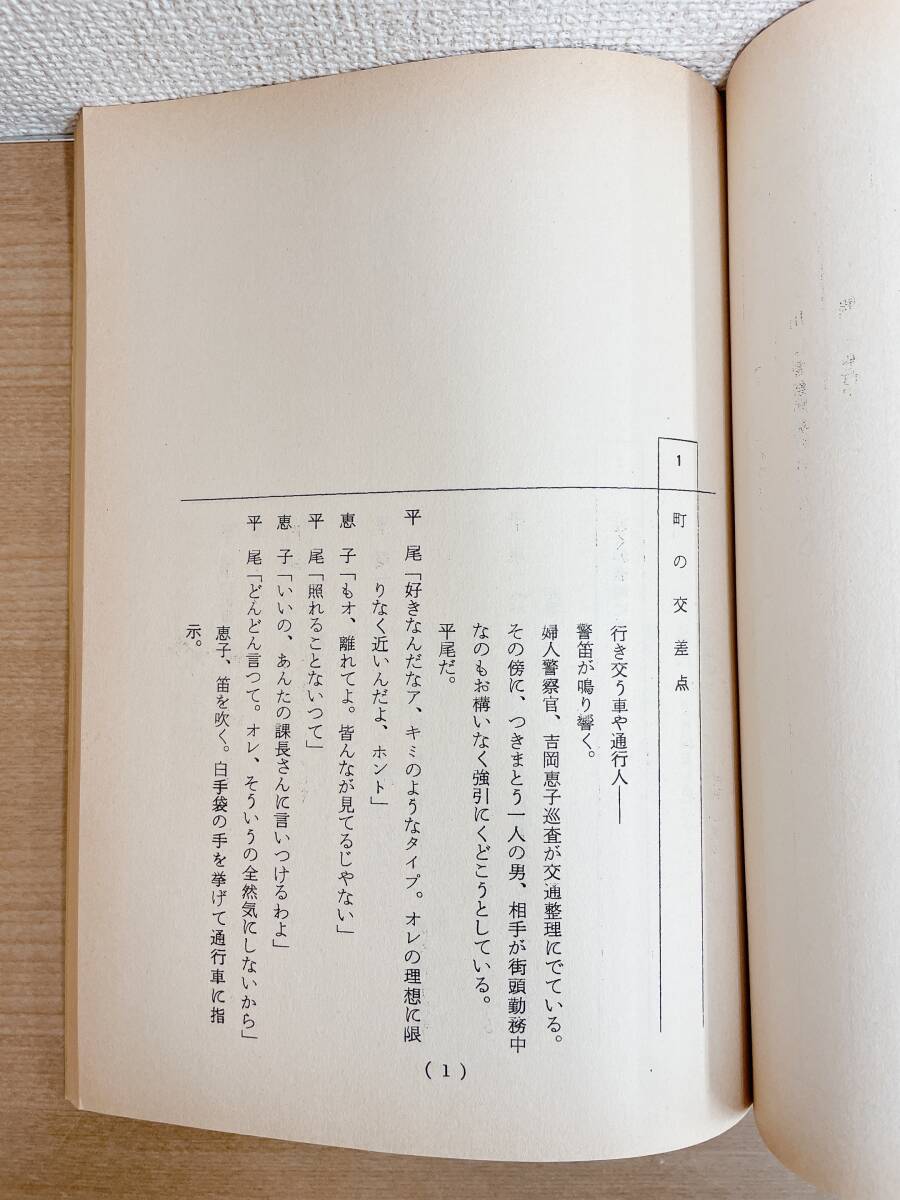 1 町の交差点
行き交う車や通行人――
警笛が鳴り響く。
婦人警察官、吉岡恵子巡査が交通整理にでている。
その傍に、つきまとう一人の男、相手が街頭勤務中
なのもお構いなく強引にくどこうとしている。
平尾だ。
平 尾「好きなんだなア、キミのようなタイプ。オレの理想に限
りなく近いんだよ、ホント」
恵 子「もオ、離れてよ。皆んなが見てるじゃない」
平 尾「照れることないつて」
恵 子「いいの、あんたの課長さんに言いつけるわよ」
平 尾「どんどん言つて。オレ、そういうの全然気にしないから」
恵子、笛を吹く。白手袋の手を挙げて通行車に指
示。
(1)